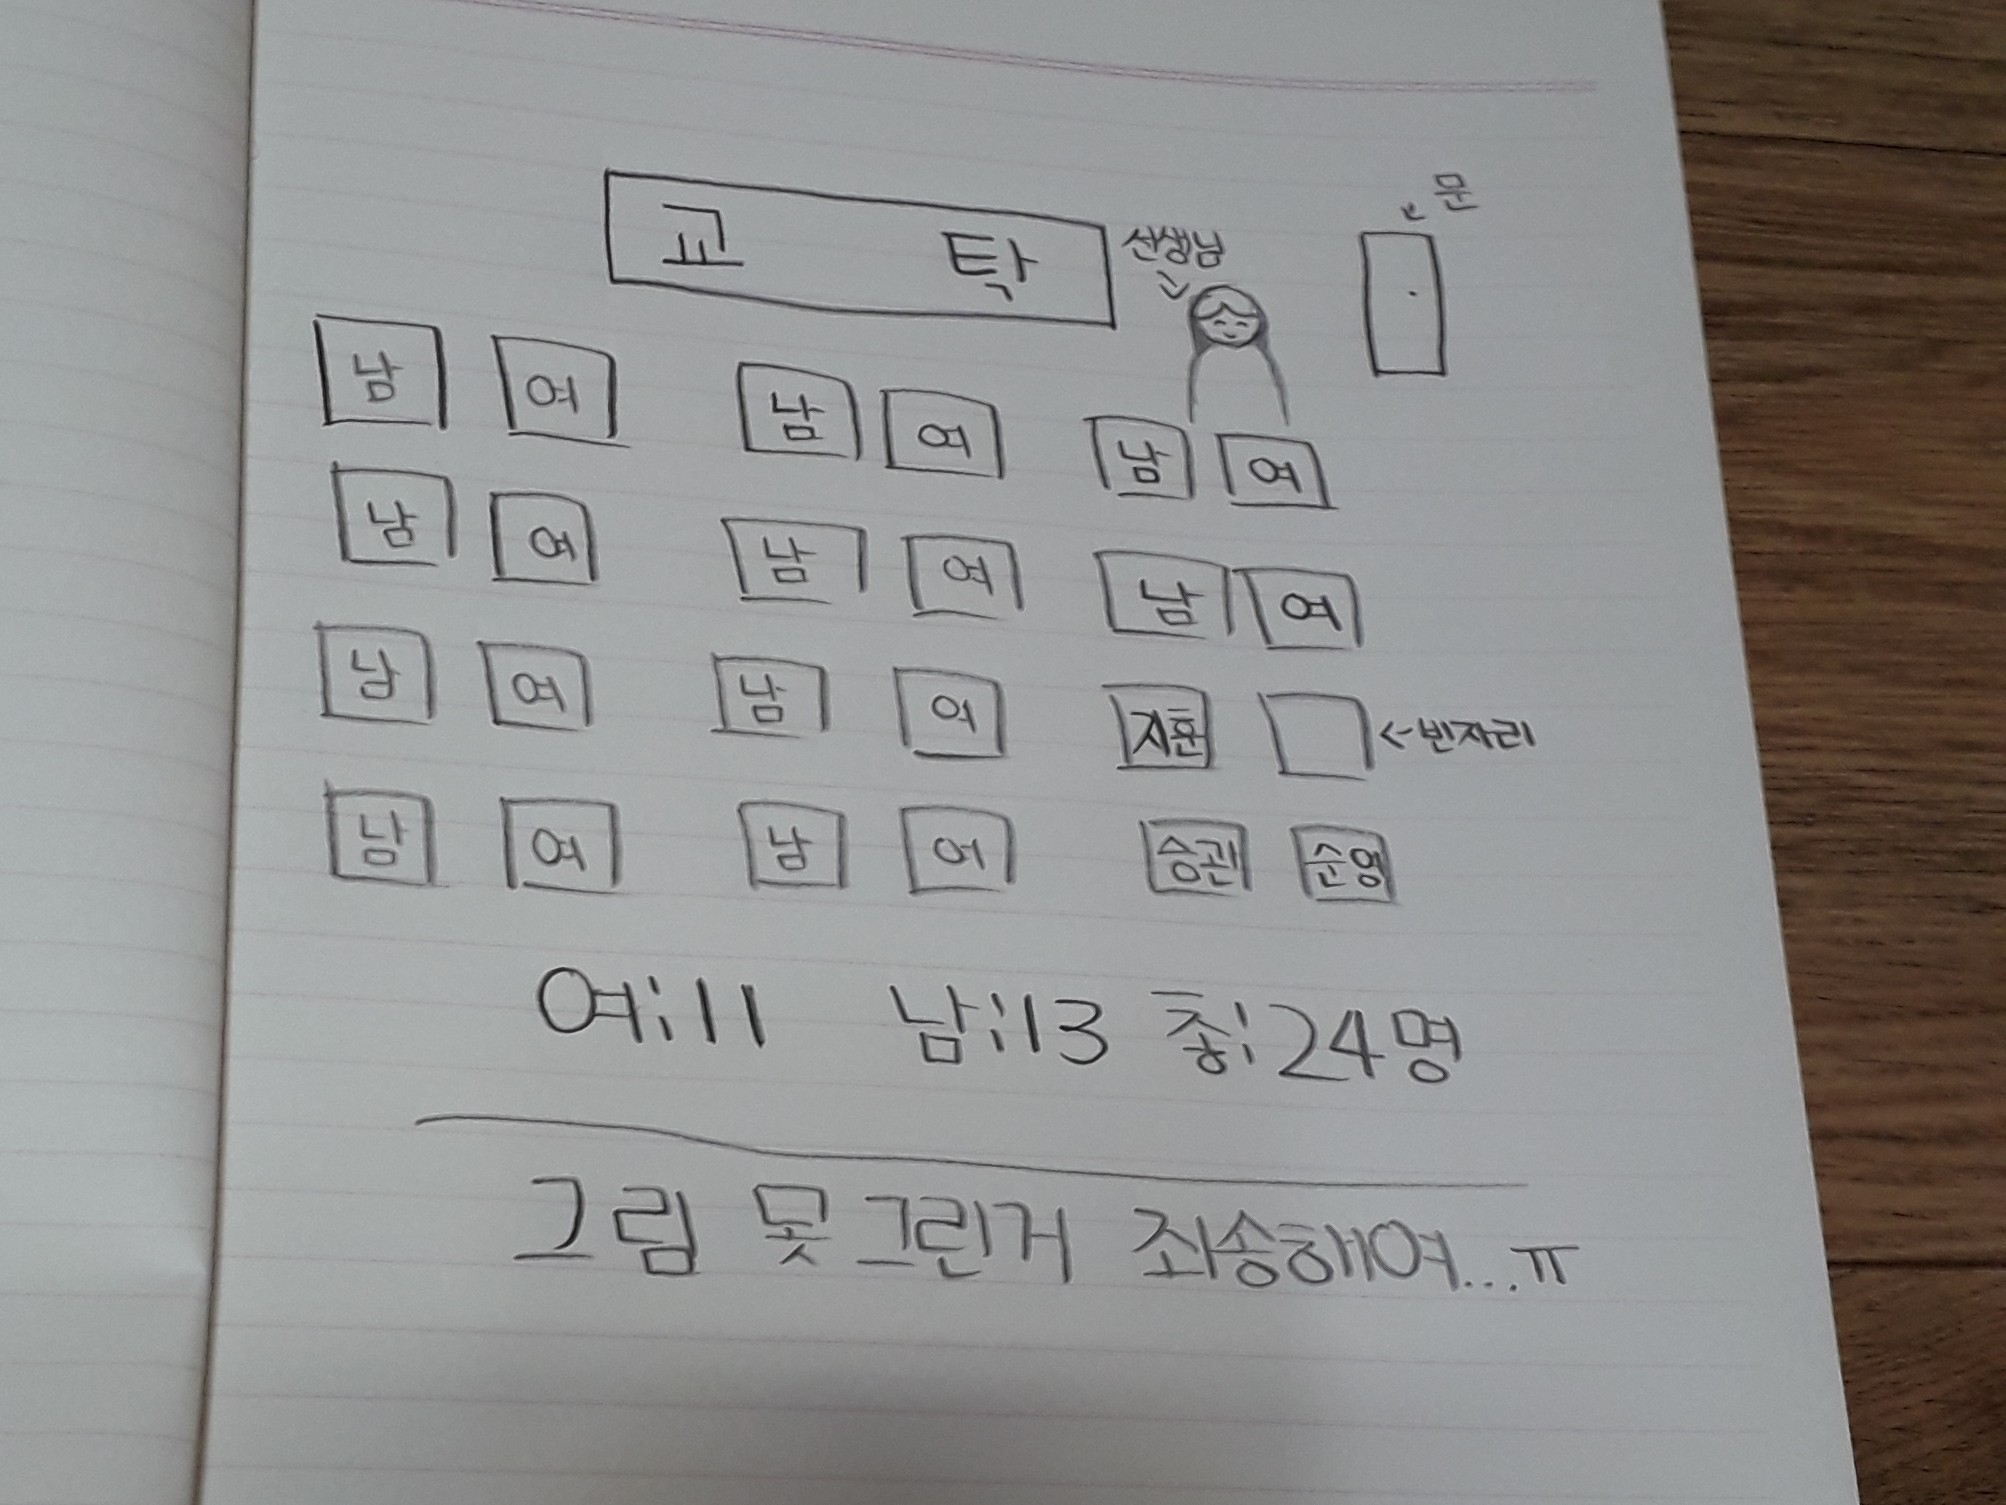 문
교 탁
선생님
남 여 남 여 남 여
남 여 남 여 남 여
남 여 남 여 지훈 <-빈자리
남 여 남 여 승관 순영
여:11 남:13 총:24명
그림 못그린거 죄송해여...ㅠ